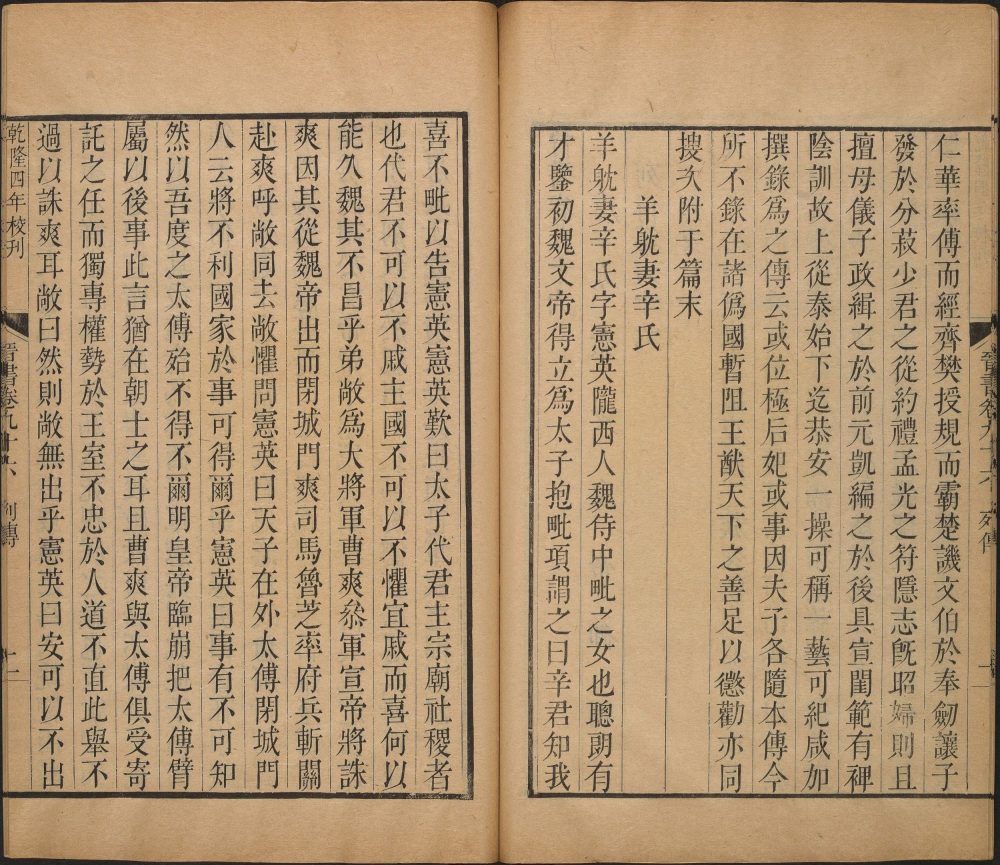 仁華率傅而經齊樊授規而霸楚譏文伯於奉劒讓子
發於分菽少君之從約禮孟光之符隱志旣昭婦則且
擅母儀子政緝之於前元凱編之於後具宣閨範有裨
陰訓故上從泰始下迄恭安一操可稱一藝可紀咸加
撰錄爲之傳云或位極后妃或事因夫子各隨本傳今
所不錄在諸僞國暫阻王猷天下之善足以懲勸亦同
搜次附于篇末
羊躭妻辛氏
羊躭妻辛氏字憲英隴西人魏侍中毗之女也聰朗有
才鑒初魏文帝得立爲太子抱毗項謂之曰辛君知我
晉書卷九十六 列傳 一
喜不毗以告憲英憲英歎曰太子代君主宗廟社稷者
也代君不可以不戚主國不可以不懼宜戚而喜何以
能久魏其不昌乎弟敞爲大將軍曹爽叅軍宣帝將誅
爽因其從魏帝出而閉城門爽司馬魯芝率府兵斬關
赴爽呼敞同去敞懼問憲英曰天子在外太傅閉城門
人云將不利國家於事可得爾乎憲英曰事有不可知
然以吾度之太傅殆不得不爾明皇帝臨崩把太傅臂
屬以後事此言猶在朝士之耳且曹爽與太傅俱受寄
託之任而獨專權勢於王室不忠於人道不直此舉不
過以誅爽耳敞曰然則敞無出乎憲英曰安可以不出
乾隆四年校刊
晉書卷九十六 列傳 二